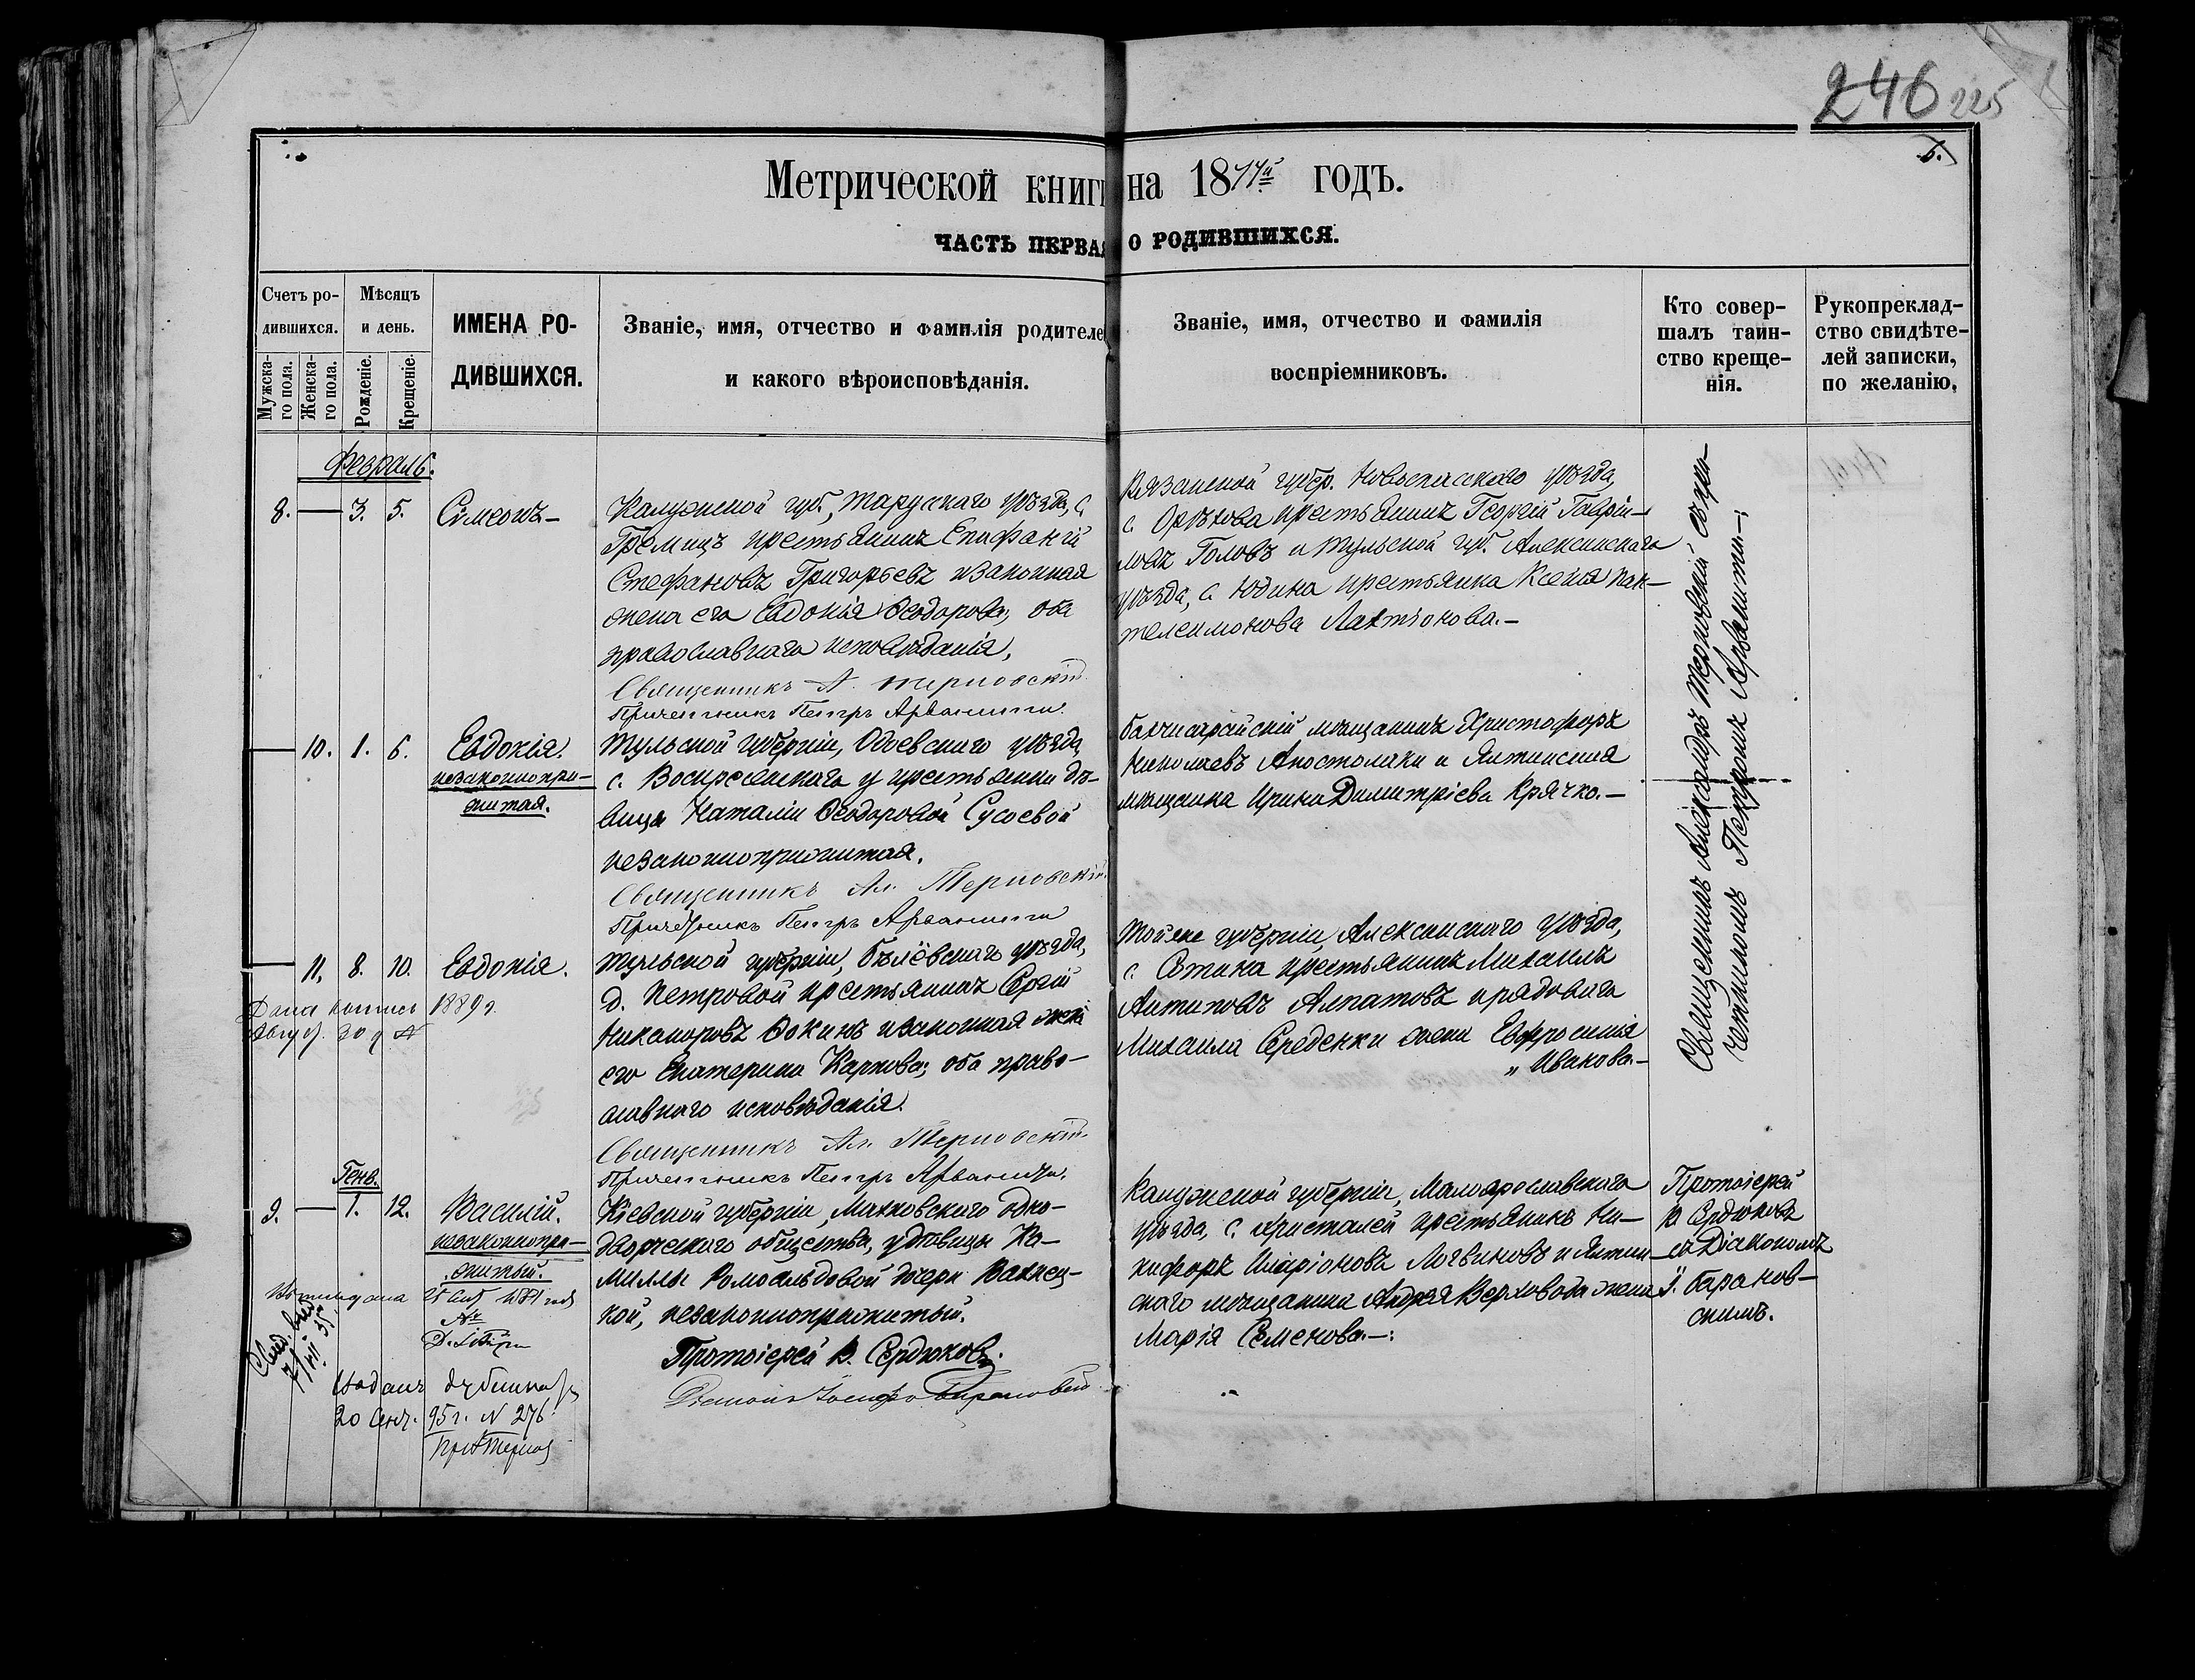 246 225
Метрической книги на 1877й годъ.
ЧАСТЬ ПЕРВАЯ О РОДИВШИХСЯ.
Счетъ ро-
дившихся.
Мужска-
го пола.
Женска-
го пола.
Мѣсяцъ
и день.
Рожденіе.
Крещеніе.
ИМЕНА РО-
ДИВШИХСЯ.
Званіе, имя, отчество и фамилія родителе
и какого вѣроисповѣданія.
Званіе, имя, отчество и фамилія
воспріемниковъ.
Кто совер-
шалъ таин-
ство креще-
нія.
Рукопреклад-
ство свидѣте-
лей записки,
по желанію.
Февраль.
8. — 3. 5. Симеонъ —
Калужской губ., Тарусскаго уѣзда, с.
Гремицъ крестьянинъ Епифаній
Стефановъ Григорьевъ и законная
жена его Евдокія Ѳеодорова, оба
православнаго исповѣданія.
Священникъ А. Терновскій
Причетникъ Петръ Арванити.
Рязанской губер. Новоспасскаго уѣзда,
с. Орѣхова крестьянинъ Георгій Гаврiи-
ловъ Головъ и Тульской губ. Алексинскаго
уѣзда, с. Юдина крестьянка Ксенія Пан-
телеимонова Лактіонова. —
Священникъ Александръ Терновскій съ при-
четникомъ Петромъ Арванити. —
— 10. 1. 6. Евдокія.
незаконнорож-
житая.
Тульской губерніи, Одоевскаго уѣзда,
с. Воскресенскаго у крестьянки дѣ-
вицы Наталіи Ѳеодоровой Сусоевой
незаконноприжитая.
Священникъ Ал. Терновскій
Причетникъ Петръ Арванити
Бахчисарайскій мѣщанинъ Христофоръ
Николаевъ Апостолаки и Ялтинская
мѣщанка Ирина Димитріева Крячко. —
— 11. 8. 10. Евдокія.
Дана выпись 1889 г.
Август. 30 д. №
Тульской губерніи, Бѣлёвскаго уѣзда,
д. Петровой крестьянинъ Сергій
Никаноровъ Ѳокинъ и законная жена
его Екатерина Карпова; оба право-
славнаго исповѣданія.
Священникъ Ал. Терновскій
Причетникъ Петръ Арванити.
Той же губерніи, Алексинскаго уѣзда,
с. Сотина крестьянинъ Михаилъ
Антиповъ Алпатовъ и рядоваго
Михаила Середенки жена Евфросинія
„ Иванова. —
Генв.
9. — 1. 12. Василій.
незаконнопри-
житый.
Кіевской губерніи, Махновскаго одно-
дворческаго общества, у вдовицы Ка-
миллы Ромоальдовой дочери Вахнец-
кой, незаконноприжитый.
Протоіерей В. Сердюковъ.
Діаконъ Іосифъ Барановскій
Калужской губерніи, Малоярославскаго
уѣзда, с. Христалей крестьянинъ Ни-
кифоръ Иларіоновъ Логвиновъ и Ялтин-
скаго мѣщанина Андрея Верховода жена
Марія Семенова. —
Протоіерей
В. Сердюковъ
съ Діакономъ
I. Баранов-
скимъ.
20 Сент. 95 г. N 276